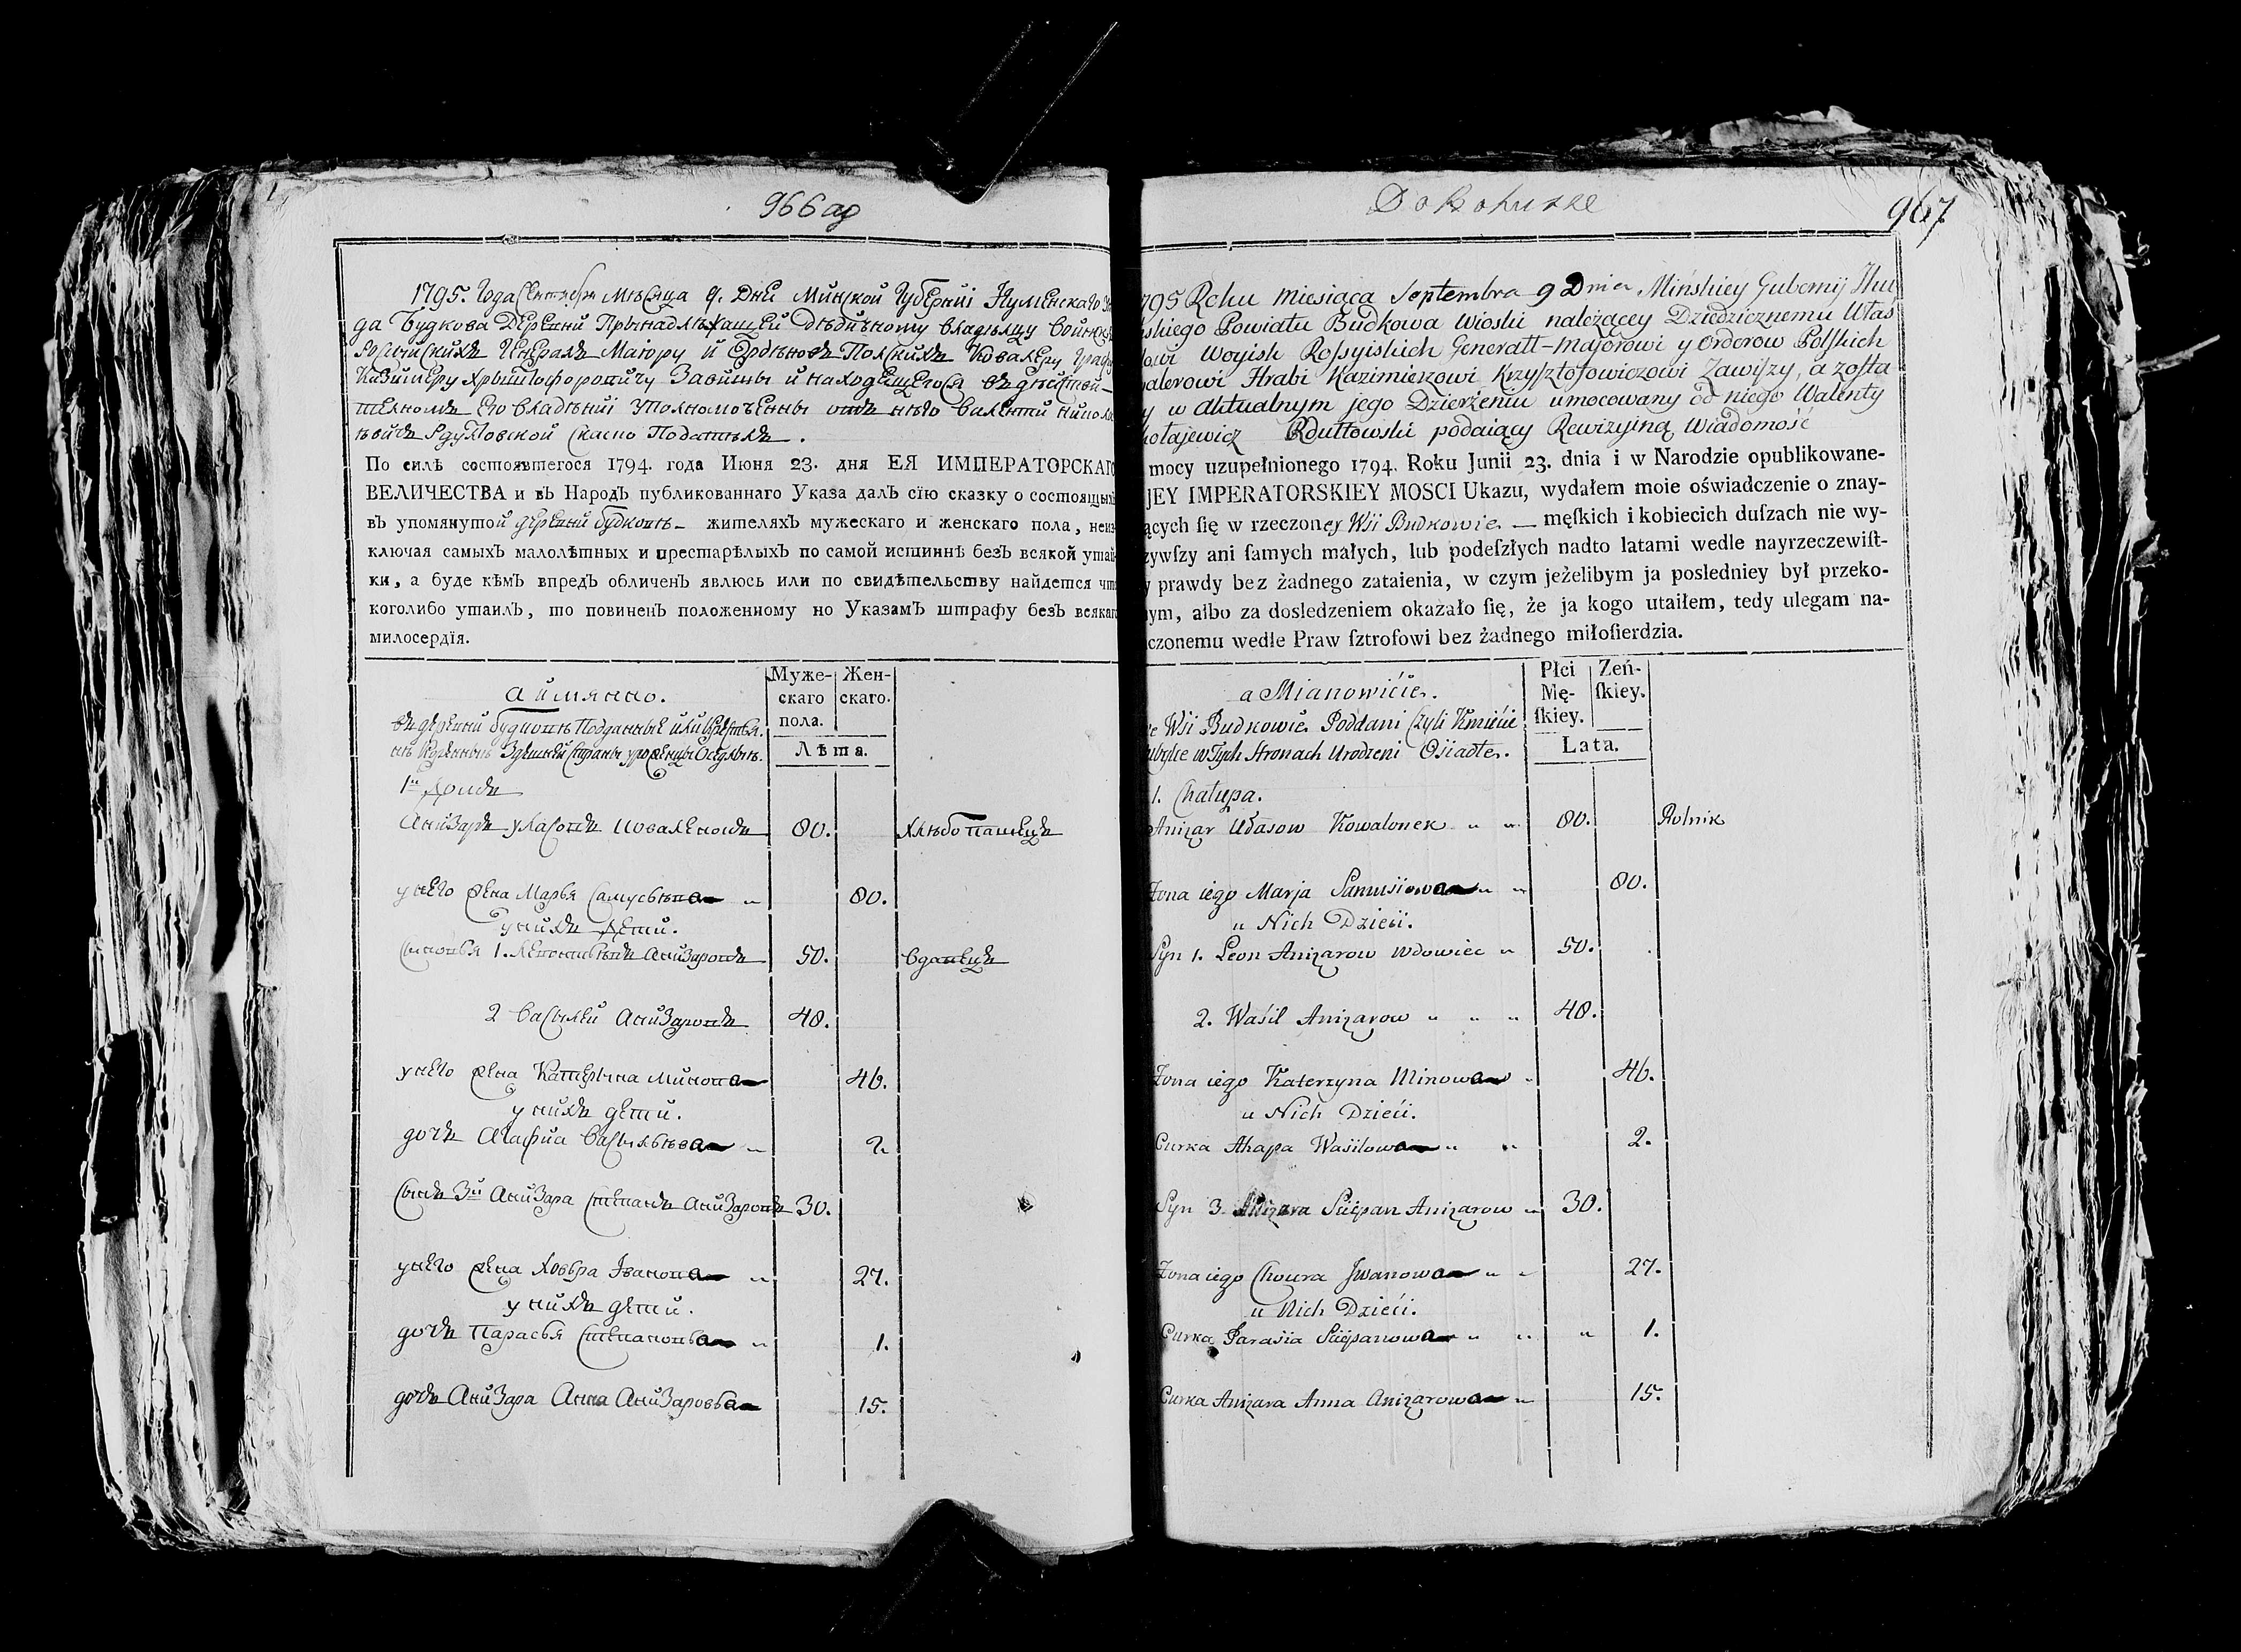 966 об
1795. Года Сентября Мѣсяца 9. Дня Минской Губерніи Иуменскаго
да Будкова Деревни Прынадлѣжащей дѣдичному владѣлцу войнск
Росиискихъ Генералъ Маіору и Ордѣновъ Полскихъ Коваліеру Графу
Казимеру Хрыштофоровичу Завишы и находещегося въ дѣйстви-
телномъ его владѣніи уполномоченны отъ нѣго Валенти Никола
ѣвичъ Рдултовской Скаску Податѣлъ.
По силѣ состоявшегося 1794. года Июня 23. дня ЕЯ ИМПЕРАТОРСКАГО
ВЕЛИЧЕСТВА и въ Народъ публикованнаго Указа далъ сїю сказку о состоящыхъ
въ упомянутой деревни Будковѣ – жителяхъ мужескаго и женскаго пола, неиз
ключая самыхъ малолѣтных и престарѣлыхъ по самой истиннѣ безъ всякой утай
ки, а буде кѣмъ впредъ обличенъ явлюсь или по свидѣтельству найдется что
коголибо утаилъ, то повиненъ положенному по Указамъ штрафу безъ всякаго
милосердїя.
а имянно.
Муже-
скаго
пола.
Жен-
скаго.
Лѣта.
въ деревни Будковѣ Подданные или крестья
1й Домъ
Анизаръ Уласовъ Коваленокъ 80. Хлѣбопашецъ
у него жена Марья Самусѣва 80.
у нихъ дети.
Сыновья 1. Анизаровъ 50. Вдовецъ
2 Василеи Анизаровъ 48.
у него жена Катерына Минова 46.
у нихъ дети.
дочь Агафиа Васильѣва 2
Сынъ 3й Анизара Степанъ Анизаровъ 30.
у него жена Ховьра Іванова 27.
у нихъ дети.
дочь Парасья Степановьа 1.
дочь Анизара Анна Анизаровьа 15.
Dokohuzke
967
795 Roku miesiąca Septembra 9 Dnia Mińskiey Gubernij Ihu
skiego Powiatu Budkowa Wioski należącey Dziedzicznemu Włas
Woyisk Roſsyiskich Generałł-majorowi y Orderow Polſkich
walerowi Hrabi Kazimierzowi Krzyſztofowiczowi Zawiſzy, a zoſta
y w aktualnym jego Dzierżeniu umocowany od niego Walenty
kołajewicz Rdułtowski podaiący Rewizyiną Wiadomość
mocy uzupełnionego 1794. Roku Junii 23. dnia i w Narodzie opublikowane-
JEY IMPERATORSKIEY MOSCI Ukazu, wydałem moie oświadczenie o znay-
ących ſię w rzeczoney Wsi Budkowie – męſkich i kobiecich duſzach nie wy-
zywſzy ani ſamych małych, lub podeſzłych nadto latami wedle nayrzeczewiſt-
y prawdy bez żadnego zataienia, w czym jeżelibym ja posledniey był przeko-
ym, albo za dosledzeniem okazało ſię, że ja kogo utaiłem, tedy ulegam na-
czonemu wedle Praw ſztrofowi bez żadnego miłoſierdzia.
a Mianowićie.
Płci
Mę-
ſkiey.
Zeń-
ſkiey.
Lata.
we Wsi Budkowie Poddani czyli Kmiećie
w Tych Stronach Urodzeni Osiadłe.
1. Chałupa.
Anizar Ułasow Kowalonek 80. Rolnik
Żona iego Marja Samusiowa 80.
u Nich Dzieći.
Syn 1. Leon Anizarow Wdowiec 50.
2. Waśil Anizarow 48.
Żona iego Katerzyna Minowa 46.
u Nich Dzieći.
Curka Ahapa Waśilowa 2.
Syn 3. Anizara Sćiepan Anizarow 30.
Żona iego Chowra Jwanowa 27.
u Nich Dzieći.
Curka Parasia Sćiepanowa 1.
Curka Anizara Anna Anizarowa 15.